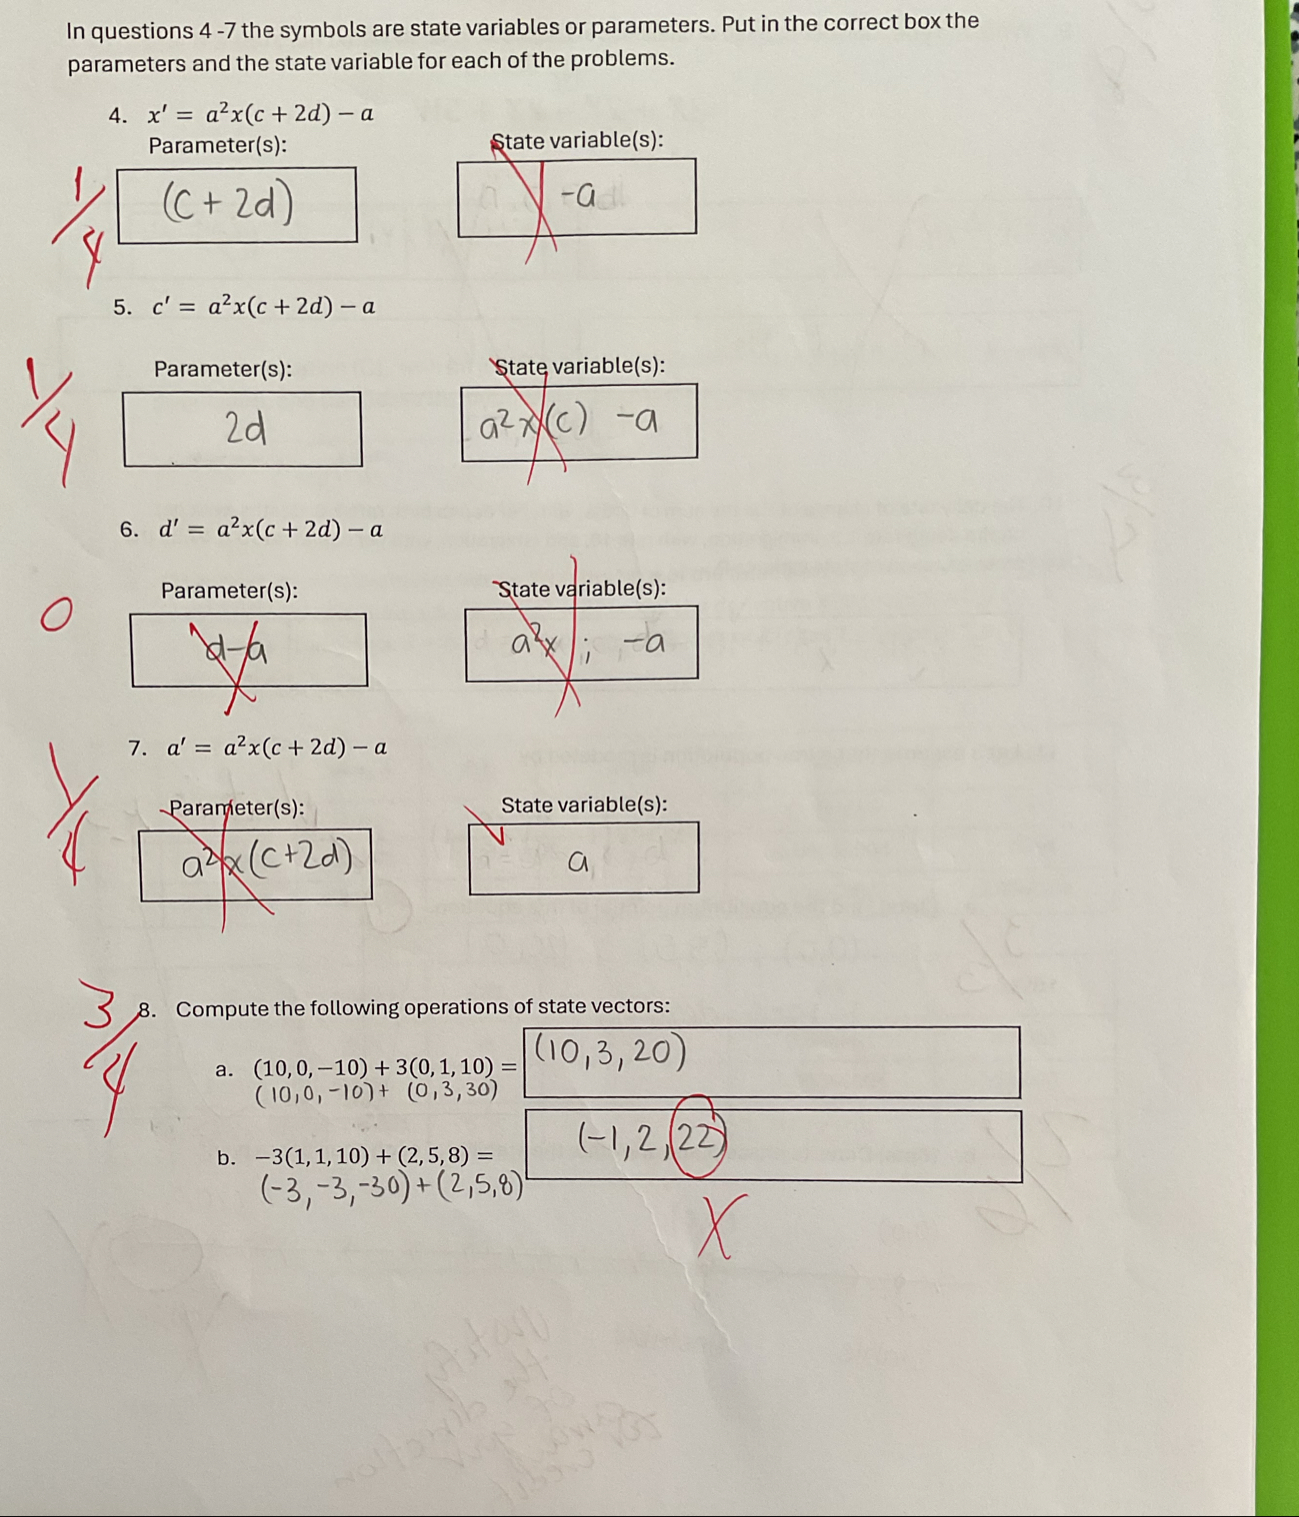 In questions 4 -7 the symbols are state variables or parameters. Put in the correct box the
parameters and the state variable for each of the problems.
4. x′ = a²x(c + 2d) − a
Parameter(s): State variable(s):
1/4 (c + 2d) -a
5. c′ = a²x(c + 2d) − a
Parameter(s): State variable(s):
1/4 2d a²x(c) -a
6. d′ = a²x(c + 2d) − a
Parameter(s): State variable(s):
0 d-a a²x ; -a
7. a′ = a²x(c + 2d) − a
Parameter(s): State variable(s):
1/4 a²x(c+2d) a
3/4 8. Compute the following operations of state vectors:
a. (10, 0, −10) + 3(0, 1, 10) = (10,3,20)
(10,0,-10)+ (0,3,30)
b. −3(1, 1, 10) + (2, 5, 8) = (-1,2,22)
(-3,-3,-30)+(2,5,8)
X